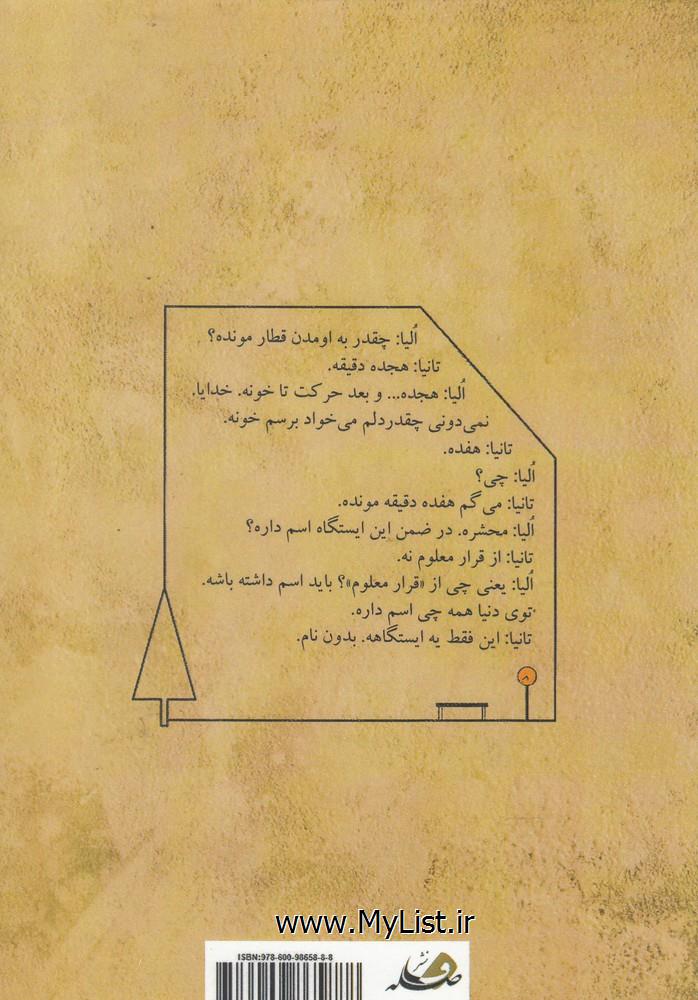 اُلیا: چقدر به اومدن قطار مونده؟
تانیا: هجده دقیقه.
اُلیا: هجده... و بعد حرکت تا خونه. خدایا.
نمی‌دونی چقدردلم می‌خواد برسم خونه.
تانیا: هفده.
اُلیا: چی؟
تانیا: می‌گم هفده دقیقه مونده.
اُلیا: محشره. در ضمن این ایستگاه اسم داره؟
تانیا: از قرار معلوم نه.
اُلیا: یعنی چی از «قرار معلوم»؟ باید اسم داشته باشه.
توی دنیا همه چی اسم داره.
تانیا: این فقط یه ایستگاهه. بدون نام.
www.MyList.ir
ISBN:978-600-98658-8-8
نشر